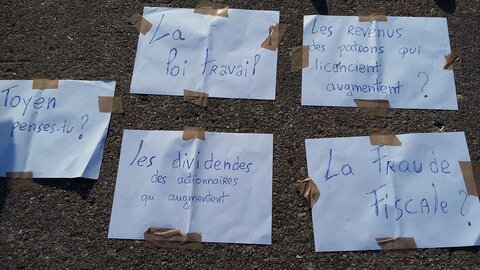 La
loi travail
Les revenus
des patrons qui
licencient
augmentent ?
Toyen
penses-tu ?
les dividendes
des actionnaires
qui augmentent
La Fraude
Fiscale ?